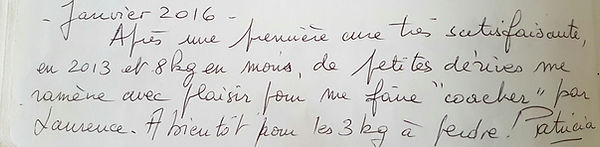 - Janvier 2016 -
Après une première cure très satisfaisante,
en 2013 et 8kg en moins, de petites dérives me
ramène avec plaisir pour me faire "coacher" par
Laurence. A bientôt pour les 3kg à perdre! Patricia